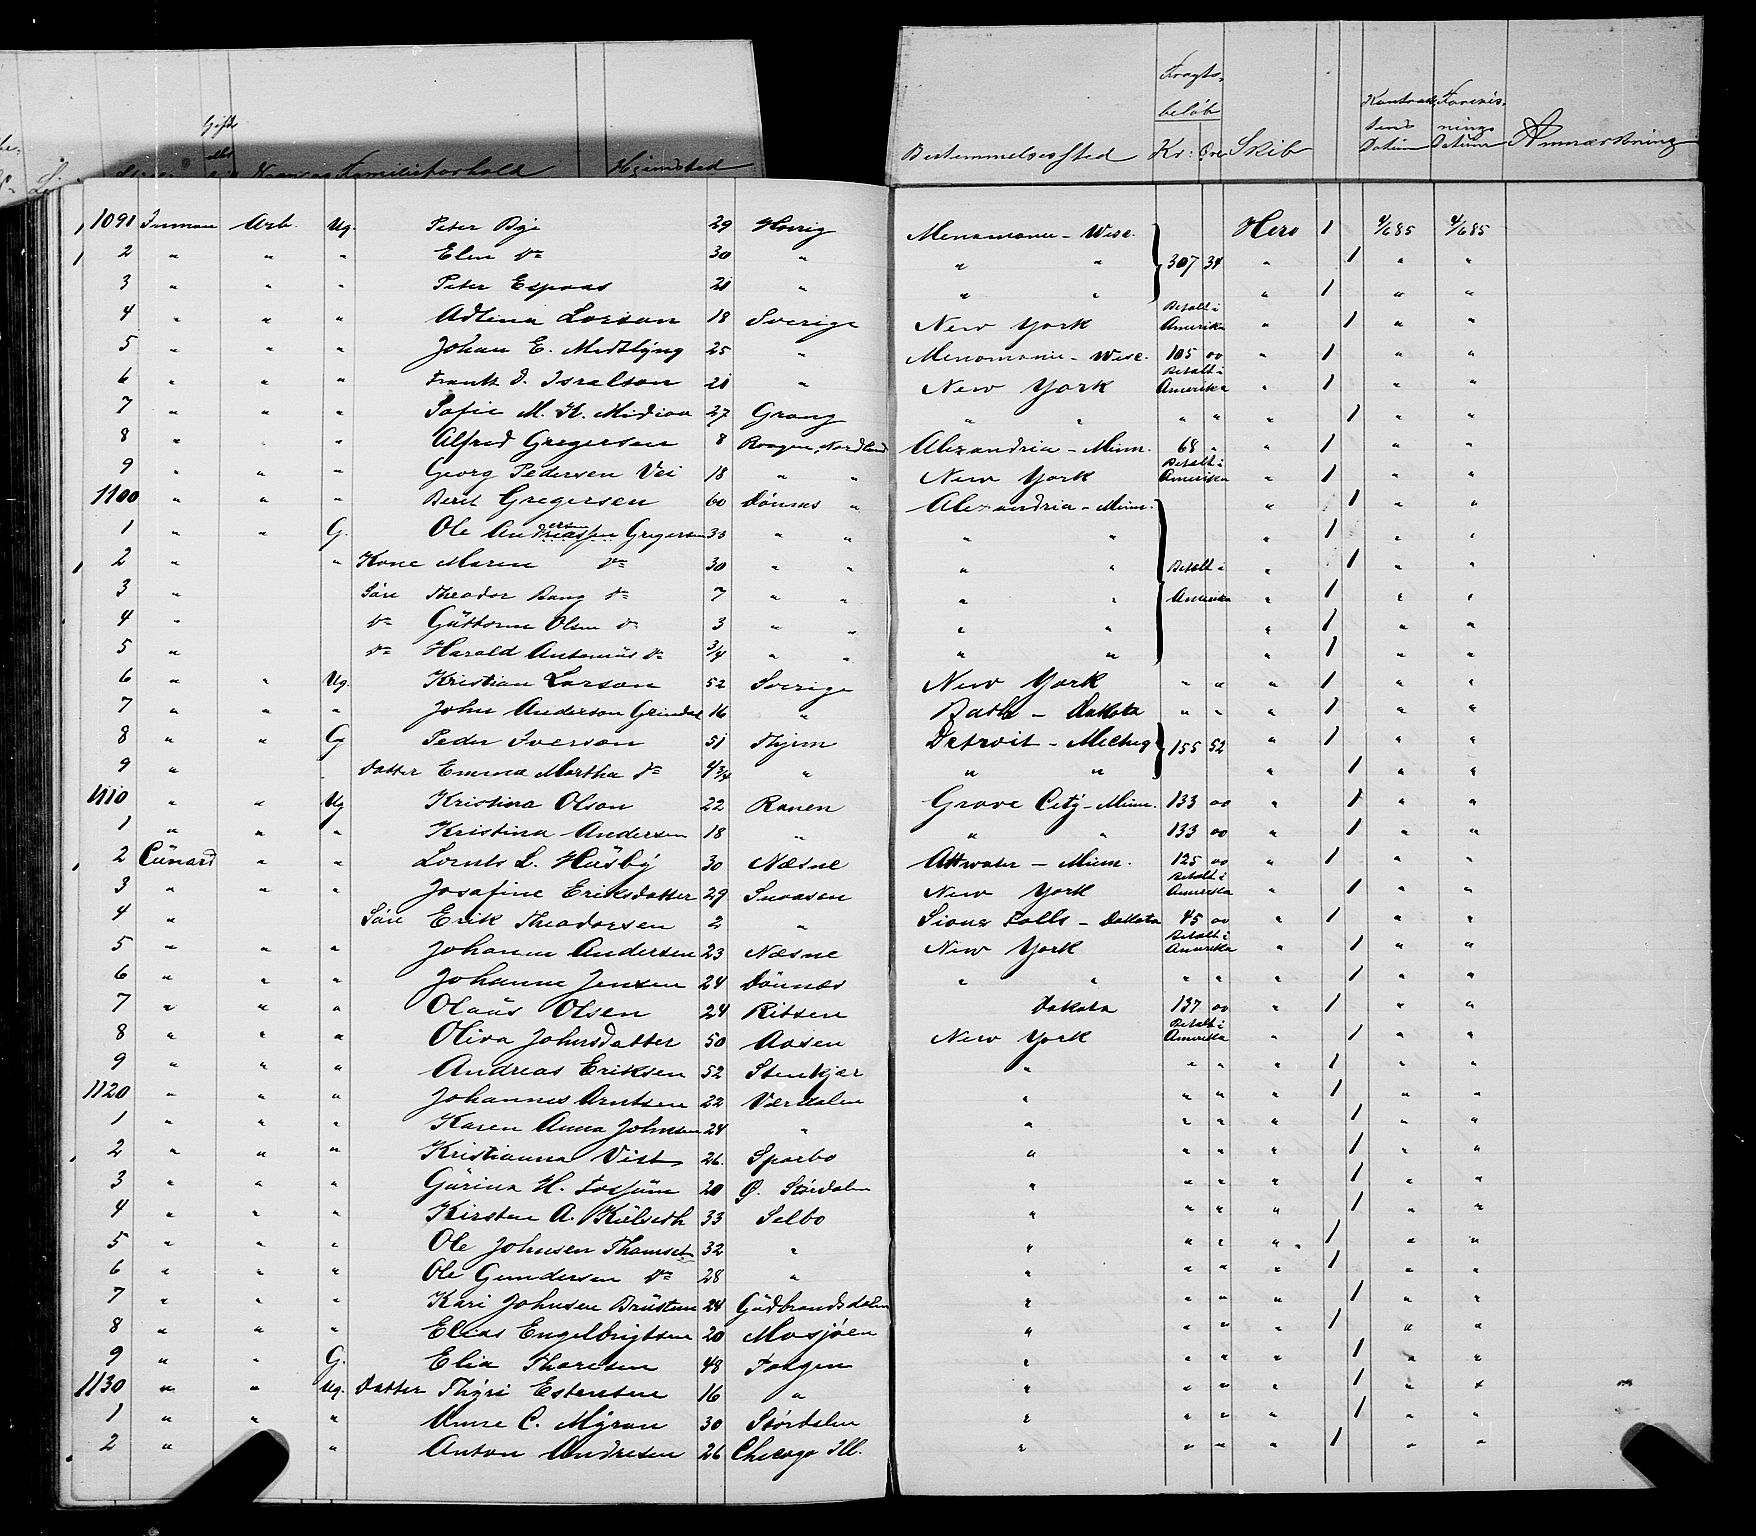 Gifte eller
Stilling Navn og Familieforhold Hjemsted Bestemmelsessted Fragtbeløb Kr: Øre Skib Kontraktens Datum Forevisnings Datum Anmærkning
1091 Inman Arb. Ug. Peter Bye 29 Horrig Menomonie - Wisc. Hero 1 4/6 85 4/6 85
2 " " " Elen do 30 " " " 307 34 " 1 " "
3 " " " Peter Espaas 21 " " " " 1 " "
4 " " " Adlina Larson 18 Sverige New York Betalt i Amerika " 1 " "
5 " " " Johan E. Midtlyng 25 " Menomonie - Wisc. 105 00 " 1 " "
6 " " " Frank O. Isralson 21 " New York Betalt i Amerika " 1 " "
7 " " " Sofie M. K. 27 Grong " " " " " 1 " "
8 " " " Alfred Gregersen 8 Nordland Alexandria - Minn. 68 " " 1 " "
9 " " " Georg Pedersen Vei 18 " " New York Betalt i Amerika " 1 " "
1100 " " " Berit Gregersen 60 Dønnes " Alexandria - Minn. " 1 " "
1 " " G. Ole Andreassen ersen Gregersen 33 " " " " " 1 " "
2 " " Kone Maren do 30 " " " " Betalt i " 1 " "
3 " Søn Theodor Bang do 7 " " " " Amerika " 1 " "
4 " do Guttorm Olsen do 3 " " " " " 1 " "
5 " do Harald Antonius do 3/4 " " " " " 1 " "
6 " " Ug. Kristian Larson 52 Sverige New York " " " 1 " "
7 " " " John Anderson Grindal 16 " Bath - Dakota " " " 1 " "
8 " " G Peder Iverson 51 Hjem Detroit - Michig 155 52 " 1 " "
9 " " Datter Emma Martha do 4 3/4 " " " " 1 " "
1110 " " Ug Kristina Olson 22 Ranen Grove City - Minn. 133 00 " 1 " "
1 " " " Kristina Andersen 18 " " " 133 00 " 1 " "
2 Cunard " " Lornts L. Husby 30 Næsne Attwater - Minn. 125 00 " 1 " "
3 " " " Josafine Eriksdatter 29 Snaasen New York Betalt i Amerika " 1 " "
4 " Søn Erik Theodorsen 2 " Sioux Falls - Dakota 45 00 " 1 " "
5 " " " Johanna Andersen 23 Næsne New York Betalt i Amerika " 1 " "
6 " " " Johanna Jensen 24 Dønnæs " " " " " 1 " "
7 " " " Olaus Olsen 24 Ritsen Dakota 137 00 " 1 " "
8 " " " Oliva Johnsdatter 50 Aasen New York Betalt i Amerika " 1 " "
9 " " " Andreas Eriksen 52 Stenkjær " " " " 1 " "
1120 " " " Johannes Arntsen 22 Værdalen " " " " 1 " "
1 " " " Karen Anna Johnsen 24 " " " " " 1 " "
2 " " " Kristianna Vist 26 Sparbo " " " " 1 " "
3 " " " Gurina H. Fossum 20 Ø. Størdalen " " " " 1 " "
4 " " " Kirsten A. Kulseth 33 Selbo " " " " 1 " "
5 " " " Ole Johnsen Thamset 32 " " " " " 1 " "
6 " " " Ole Gundersen do 28 " " " " " 1 " "
7 " " " Kari Johnsen 24 Gudbrandsdalen " " " " 1 " "
8 " " " Elias Engelbrigtsen 20 Mosjøen " " " " 1 " "
9 " " G. Elia Thoresen 48 " " " " 1 " "
1130 " " Ug. Datter Thyri Estensen 16 " " " " " 1 " "
1 " " " Anne C. Myran 30 Størdalen " " " " 1 " "
2 " " Anton Andresen 26 Chicago Ill. " " " " 1 " "